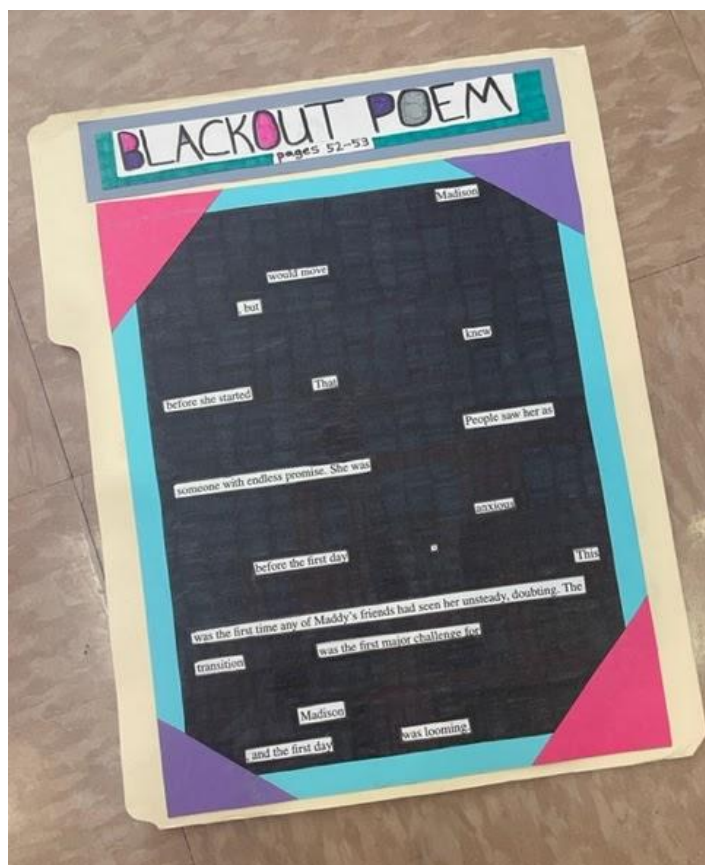 BLACKOUT POEM
pages 52-53
Madison
would move
, but
knew
before she started That
People saw her as
someone with endless promise. She was
anxious
before the first day .
This
was the first time any of Maddy's friends had seen her unsteady, doubting. The
transition was the first major challenge for
Madison
, and the first day was looming.